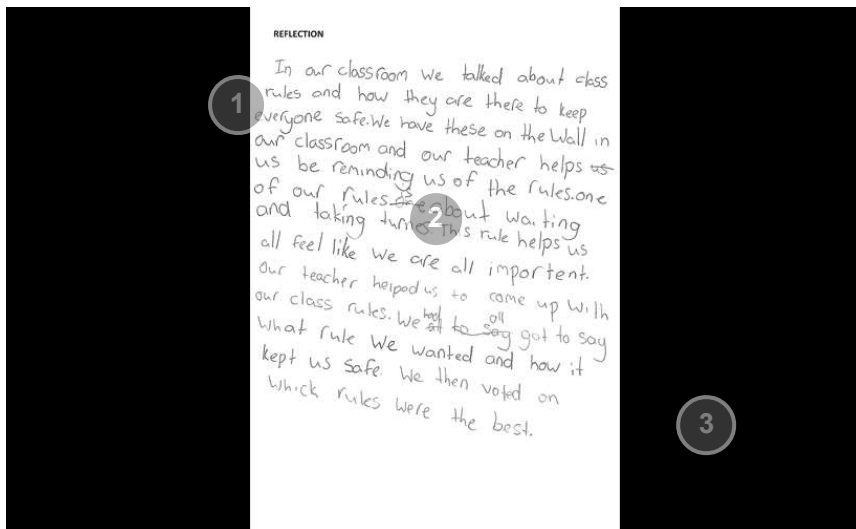 REFLECTION
In our classroom we talked about class
rules and how they are there to keep
everyone safe. We have these on the Wall in
our classroom and our teacher helps us
us be reminding us of the rules. one
of our rules is about waiting
and taking turns. This rule helps us
all feel like we are all importent.
Our teacher helped us to come up with
our class rules. We all got to say
what rule we wanted and how it
kept us safe. We then voted on
which rules were the best.
1
2
3